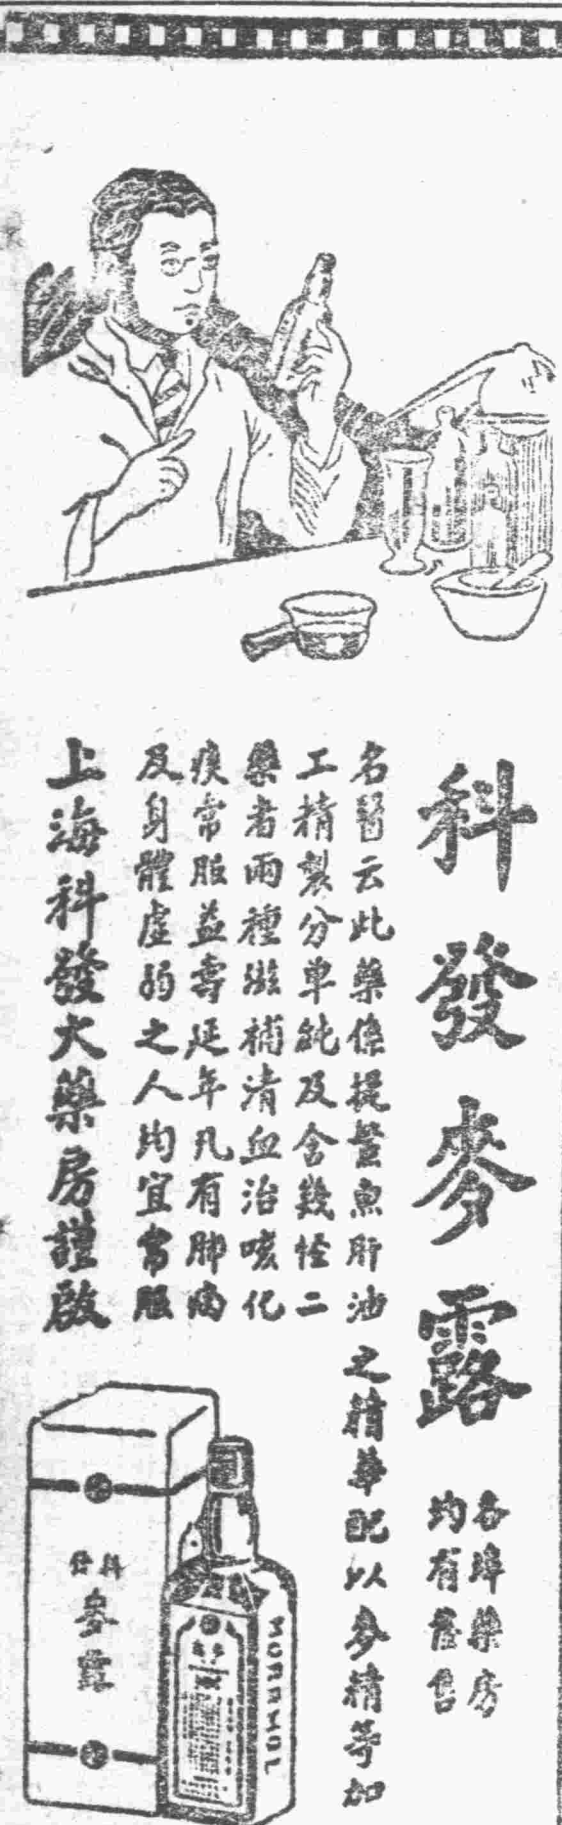 科發麥露
各埠藥房
均有售
名醫云此藥係提鰵魚肝油之精華配以麥精等加
工精製分單純及含幾怪二
藥者兩種滋補清血治咳化
痰常服益壽延年凡有肺病
及身體虛弱之人均宜常服
上海科發大藥房謹啟
科發
麥露
MORRHOL